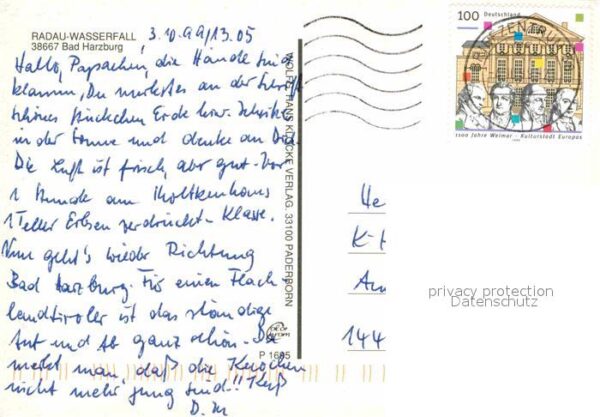 RADAU-WASSERFALL
38667 Bad Harzburg
3.10.99/13.05
Hallo, Papachen, die Hände sind
klamm, Du merkst es an der Schrift
schönes Stückchen Erde hier. Sitze
in der Sonne und denke an Dich.
Die Luft ist frisch, aber gut. Vor
1 Stunde am Molkenhaus
1 Teller Erbsen verdrückt - Klasse.
Nun geht's wieder Richtung
Bad Harzburg. Für einen Flach-
landtiroler ist das ständige
Auf und Ab ganz schön. Da
merkt man, daß die Knochen
nicht mehr jung sind!! Kuß
D. M
WOLFG. HANS KLOCKE VERLAG, 33100 PADERBORN
P 1665
100 Deutschland
1100 Jahre Weimar Kulturstadt Europas
He
K-H
Am
144
privacy protection
Datenschutz